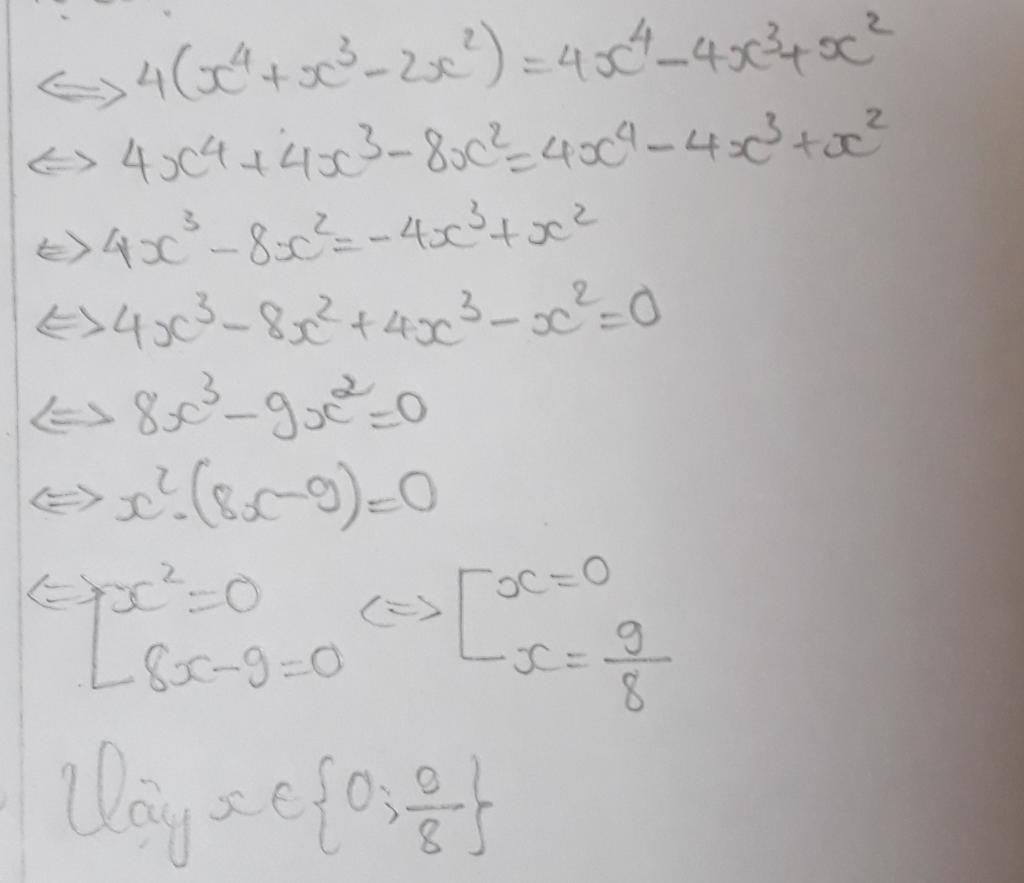 ⇔ 4(x⁴ + x³ − 2x²) = 4x⁴ − 4x³ + x²
⇔ 4x⁴ + 4x³ − 8x² = 4x⁴ − 4x³ + x²
⇔ 4x³ − 8x² = −4x³ + x²
⇔ 4x³ − 8x² + 4x³ − x² = 0
⇔ 8x³ − 9x² = 0
⇔ x².(8x − 9) = 0
⇔ [x² = 0; 8x − 9 = 0 ⇔ [x = 0; x = 9/8
Vậy x ∈ {0; 9/8}